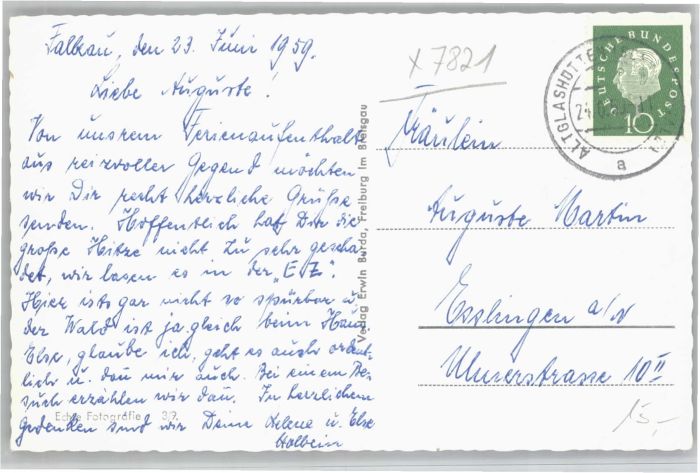 Falkau, den 23. Juni 1959.
Liebe Auguste!
Von unsrem Ferienaufenthalt
aus reizvoller Gegend möchten
wir Dir recht herzliche Grüße
senden. Hoffentlich hat Dir die
große Hitze nicht zu sehr gescha-
det, wir lasen es in der „EZ".
Hier ists gar nicht so spürbar u.
der Wald ist ja gleich beim Haus
Else, glaube ich, geht es auch ordent-
lich u. dan mir auch. Bei einem Be-
such erzählen wir dan. In herzlichem
Gedenken sind wir Deine Helene u. Else
Holbein
Echte Fotografie
Verlag Erwin Burda, Freiburg im Breisgau
x 7821
DEUTSCHE BUNDESPOST
10
ALTGLASHÜTTEN
a
Fräulein
Auguste Martin
Esslingen a/N
Ulmerstrasse 10 II
15,-